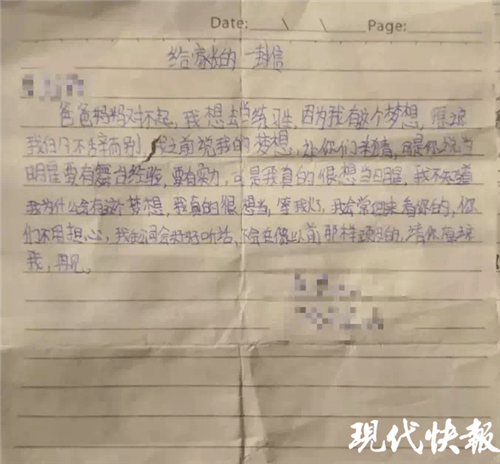 Date: \ \ Page:
给家长的一封信
爸爸妈妈对不起,我想去当练习生,因为我有这个梦想,原谅
我的不辞而别,我之前说我的梦想,你们说当
明星要有舞台经验,要有实力,可是我真的很想当明星,我不知道
我为什么会有这个梦想,我真的很想当,等我火了,我会常回来看你的,你
们不用担心,我会好好听话,不会在像以前那样顽皮的,请你原谅
我,再见。
现代快报